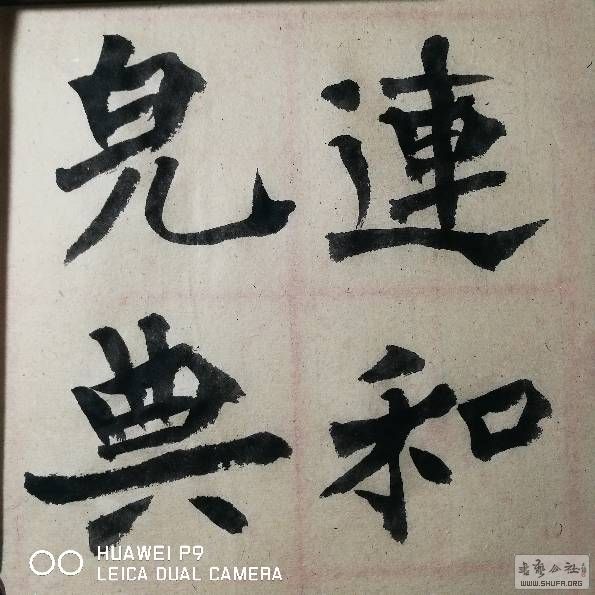 連和
皃典
HUAWEI P9
LEICA DUAL CAMERA
WWW.SHUFA.ORG